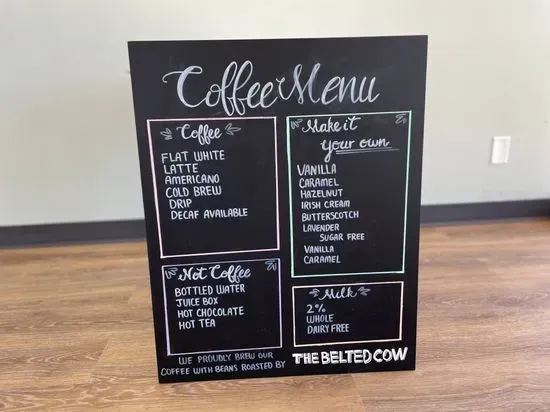 Coffee Menu
Coffee
FLAT WHITE
LATTE
AMERICANO
COLD BREW
DRIP
DECAF AVAILABLE
Make it
your own
VANILLA
CARAMEL
HAZELNUT
IRISH CREAM
BUTTERSCOTCH
LAVENDER
SUGAR FREE
VANILLA
CARAMEL
Not Coffee
BOTTLED WATER
JUICE BOX
HOT CHOCOLATE
HOT TEA
Milk
2%
WHOLE
DAIRY FREE
WE PROUDLY BREW OUR
COFFEE WITH BEANS ROASTED BY
THE BELTED COW